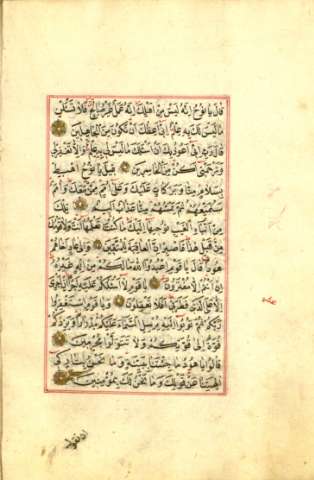 قَالَ يَا نُوحُ اِنَّهُ لَيْسَ مِنْ اَهْلِكَ اِنَّهُ عَمَلٌ غَيْرُ صَالِحٍ فَلَا تَسْئَلْنِ
مَا لَيْسَ لَكَ بِهِ عِلْمٌ اِنِّى اَعِظُكَ اَنْ تَكُونَ مِنَ الْجَاهِلِينَ
قَالَ رَبِّ اِنِّى اَعُوذُ بِكَ اَنْ اَسْئَلَكَ مَا لَيْسَ لِى بِهِ عِلْمٌ وَاِلَّا تَغْفِرْ لِى
وَتَرْحَمْنِى اَكُنْ مِنَ الْخَاسِرِينَ قِيلَ يَا نُوحُ اهْبِطْ
بِسَلَامٍ مِنَّا وَبَرَكَاتٍ عَلَيْكَ وَعَلَى اُمَمٍ مِمَّنْ مَعَكَ وَاُمَمٌ
سَنُمَتِّعُهُمْ ثُمَّ يَمَسُّهُمْ مِنَّا عَذَابٌ اَلِيمٌ تِلْكَ
مِنْ اَنْبَاءِ الْغَيْبِ نُوحِيهَا اِلَيْكَ مَا كُنْتَ تَعْلَمُهَا اَنْتَ وَلَا قَوْمُكَ
مِنْ قَبْلِ هٰذَا فَاصْبِرْ اِنَّ الْعَاقِبَةَ لِلْمُتَّقِينَ وَاِلَى عَادٍ اَخَاهُمْ
هُودًا قَالَ يَا قَوْمِ اعْبُدُوا اللّٰهَ مَا لَكُمْ مِنْ اِلٰهٍ غَيْرُهُ
اِنْ اَنْتُمْ اِلَّا مُفْتَرُونَ يَا قَوْمِ لَا اَسْئَلُكُمْ عَلَيْهِ اَجْرًا اِنْ اَجْرِىَ
اِلَّا عَلَى الَّذِى فَطَرَنِى اَفَلَا تَعْقِلُونَ وَيَا قَوْمِ اسْتَغْفِرُوا
رَبَّكُمْ ثُمَّ تُوبُوا اِلَيْهِ يُرْسِلِ السَّمَاءَ عَلَيْكُمْ مِدْرَارًا وَيَزِدْكُمْ
قُوَّةً اِلَى قُوَّتِكُمْ وَلَا تَتَوَلَّوْا مُجْرِمِينَ
قَالُوا يَا هُودُ مَا جِئْتَنَا بِبَيِّنَةٍ وَمَا نَحْنُ بِتَارِكِى
اٰلِهَتِنَا عَنْ قَوْلِكَ وَمَا نَحْنُ لَكَ بِمُؤْمِنِينَ
ان نقول